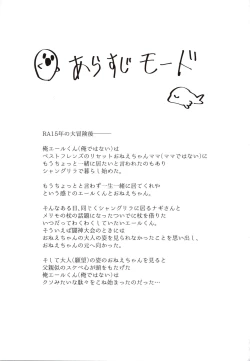 あらすじモード
RA15年の大冒険後―――
俺エールくん(俺ではない)は
ベストフレンズのリセットおねえちゃんママ(ママではない)に
もうちょっと一緒に居たいと言われたのもあり
シャングリラで暮らし始めた。
もうちょっとと言わず一生一緒に居てくれや
という感じのエールくん。
そんなある日、同じくシャングリラに居るナギさんと
メリモセの杖の話題になったついでに杖を借りた
いつだってわくわくしていたいエールくん。
そういえば闘神大会のときには
おねえちゃんの大人の姿を見られなかったことを思い出し、
おねえちゃんの元へ向かった。
そして大人(願望)の姿のおねえちゃんを見ると
父親似のスケベ心が頭をもたげた
俺エールくん(俺ではない)は
クソみたいな駄々をこね始めたのだった…